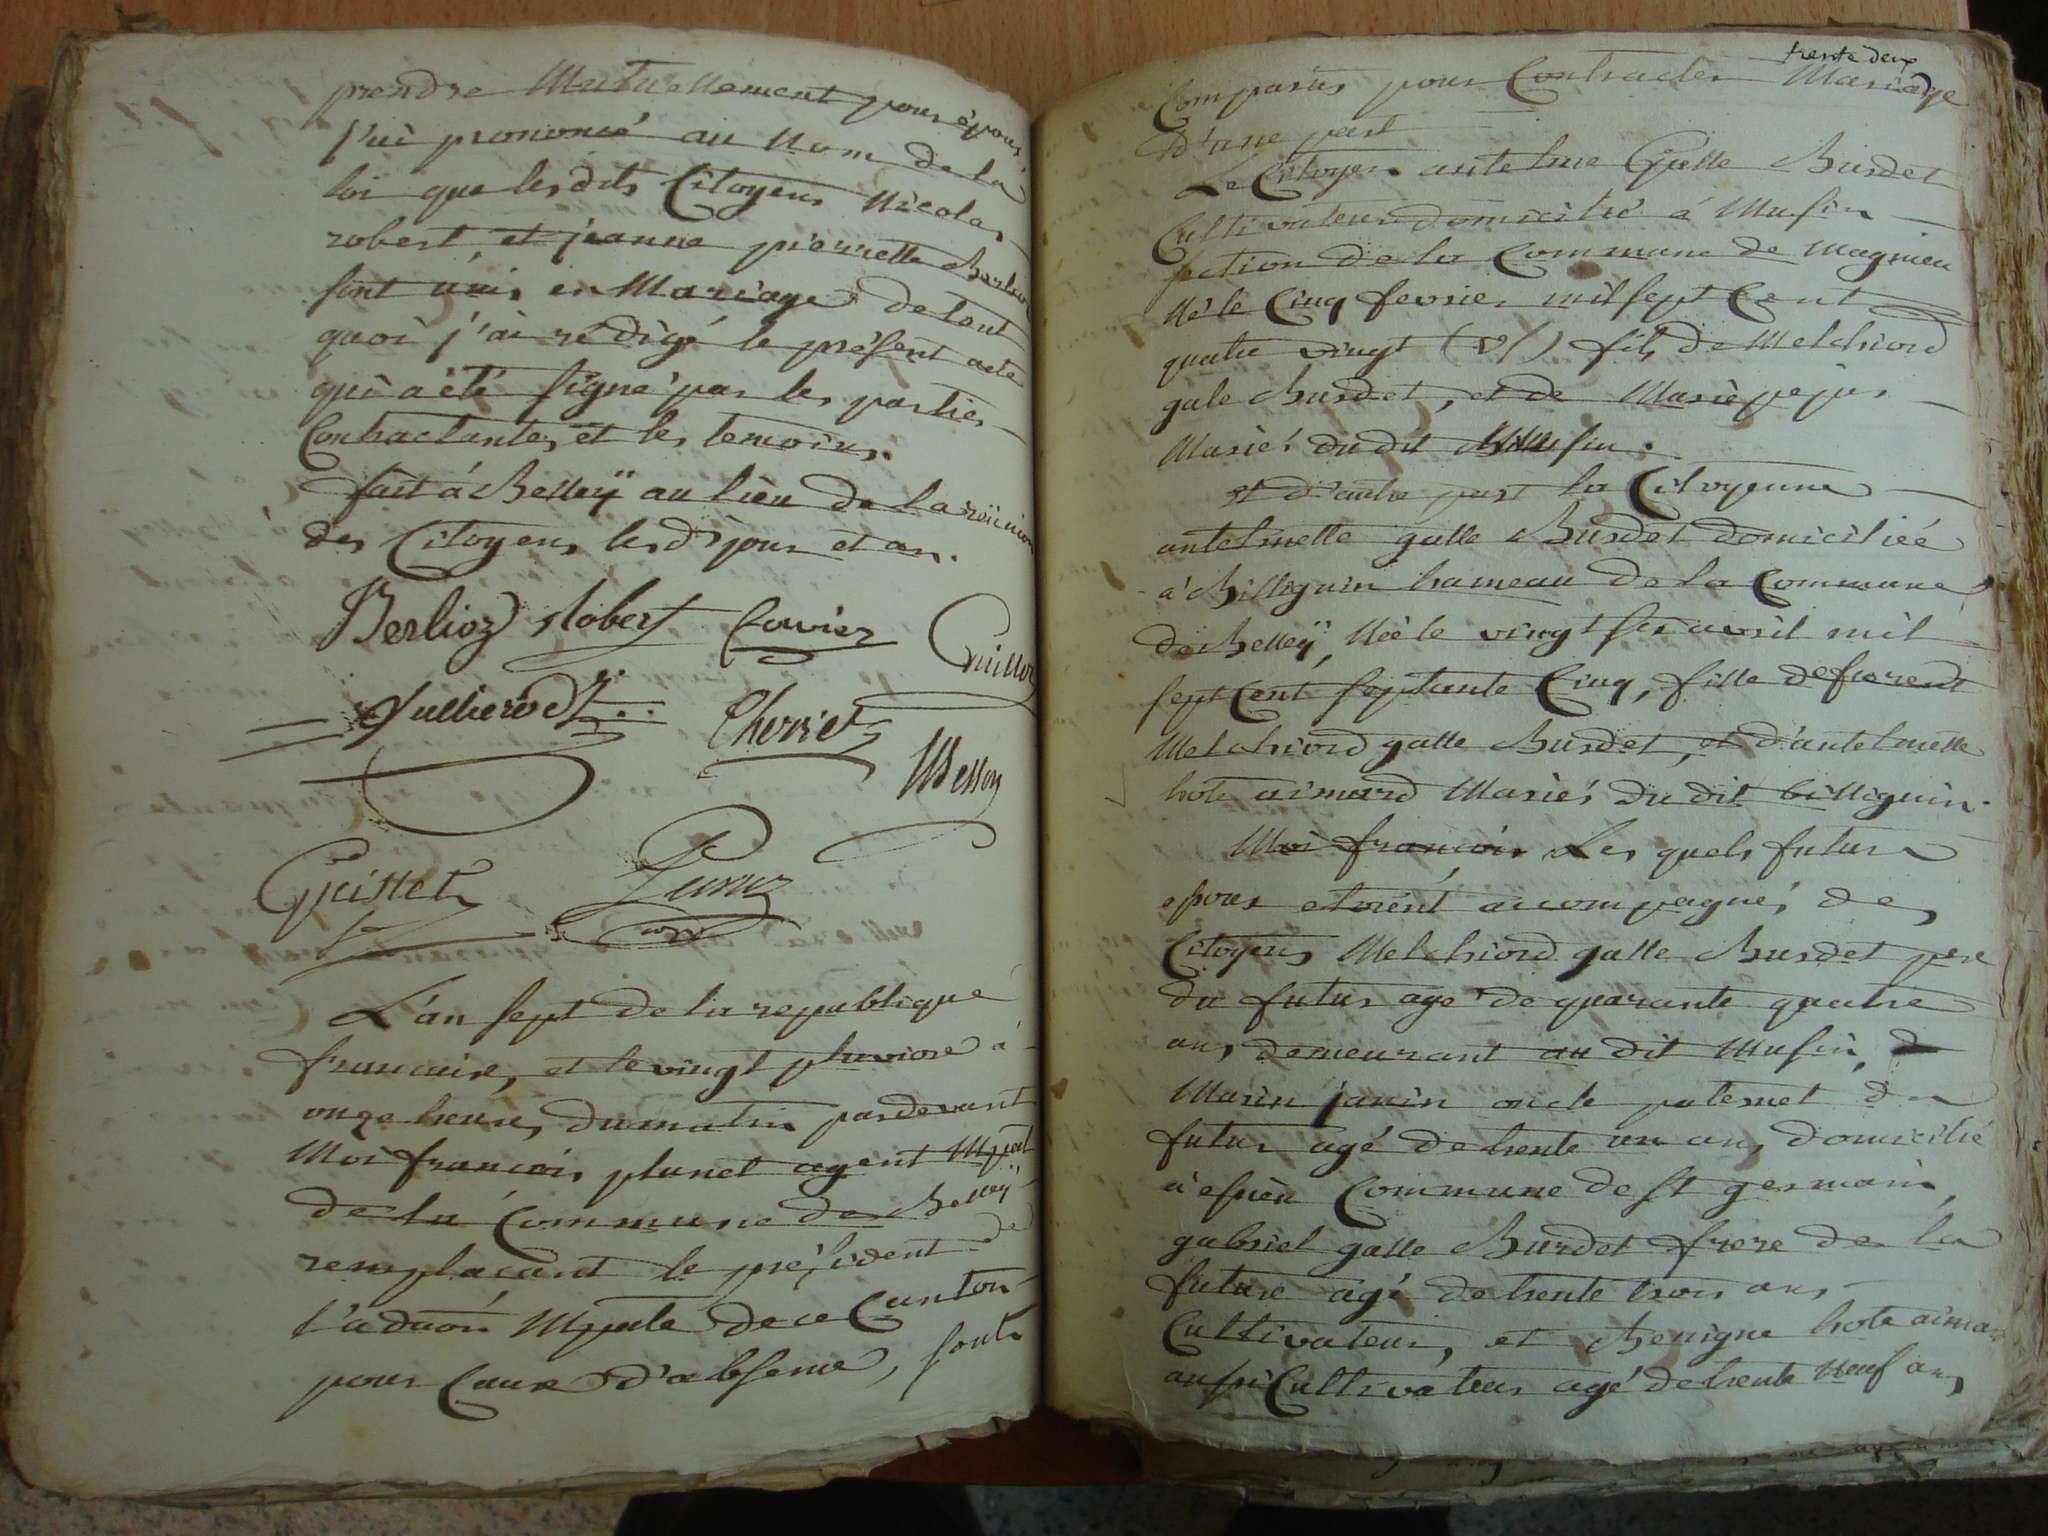 prendre Mutuellement pour épous.
j'ai prononcé au Nom de la
loi que lesdits Citoyens Nicolas
robert, et jeanne pierrette Berlioz
sont unis en Mariage de tout
quoi j'ai rédigé le présent acte
qui a été signé par les parties
Contractantes et les temoins.
fait à Belleÿ au lieu de la reünion
des Citoyens lesd jour et an.
Berlioz Robert Cuvier Guillon
Jullierod
Cherret
MBesson
Guistet
L'an sept de la republique
francaise, et le vingt pluviose à
onze heures du matin pardevant
Moi francois plunet agent Mpal
de la Commune de Belleÿ
remplaçant le président de
l'aduon Mpale de ce Canton
pour Cause d'absence, sont
trente deux
Comparus pour Contracter Mariage
D'une part
Le Citoyen antelme Gualle Burdet
Cultivateur domicilié à Musin
section de la Commune de Magnieu
Né le Cinq fevrier mil sept Cent
quatre vingt (V/) fils de Melchiord
gale Burdet, et de Marie pejus
Mariés du dit Musin.
et d'autre part la Citoyenne
antelmette galle Burdet domiciliée
à Billignin hameau de la Commune
de Belleÿ, Née le vingt six avril mil
sept Cent septante Cinq, fille de florent
Melchiord galle Burdet, et d'antelmette
hote aimard Mariés du dit billignin.
Moi francois Les quels futurs
epoux etoient accompagnés des
Citoyens Melchiord galle Burdet pere
du futur age de quarante quatre
ans demeurant au dit Musin, de
Marin janin oncle paternel du
futur agé de trente un ans domicilié
à essieu Commune de St germain,
gabriel galle Burdet frere de la
future agé de trente trois ans
Cultivateur, et Benigne hote aimard
aussi Cultivateur agé de trente Neuf ans